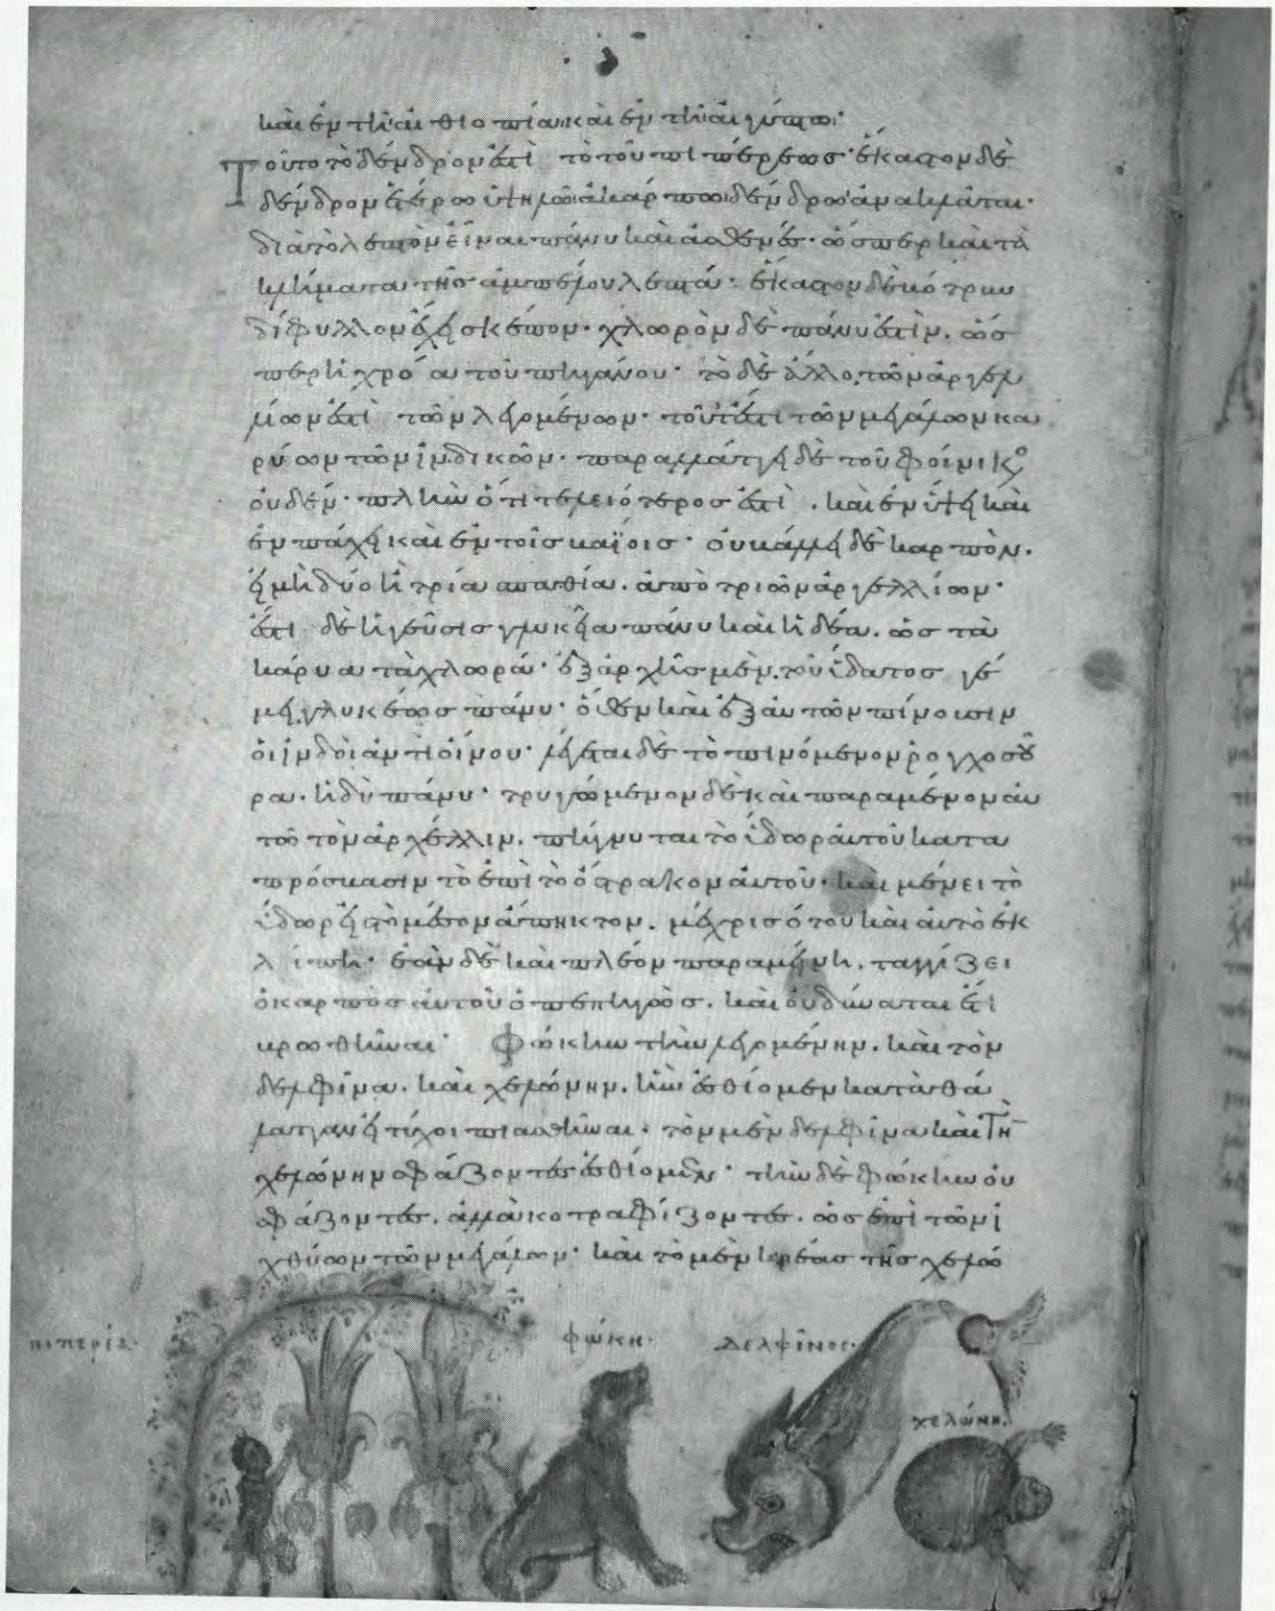 καὶ ἐν τῆ αἰθιοπία καὶ ἐν τῆ αἰγύπτω·
Τοῦτο τὸ δένδρον ἐστὶ τὸ τοῦ πιπέρεως· ἕκαστον δὲ
δένδρον ἑτέρω ὑψηλῶ ἀκάρπω δένδρω ἀνακλᾶται·
διὰ τὸ λεπτὸν εἶναι πάνυ καὶ ἀσθενές· ὥσπερ καὶ τὰ
κλήματα τῆς ἀμπέλου λεπτά· ἕκαστον δὲ βότρυν
δίφυλλον ἔχει σκέπον· χλωρὸν δὲ πάνυ ἐστὶν. ὡς
περ ἡ χρόα τοῦ πηγάνου· τὸ δὲ ἄλλο, τῶν ἀργελ
λίων ἐστὶ τῶν λεγομένων· τουτέστι τῶν μεγάλων κα
ρύων τῶν ἰνδικῶν· παραλλάττει δὲ τοῦ φοίνικος
οὐδέν· πλὴν ὅτι τελειότερος ἐστὶ. καὶ ἐν ὕψει καὶ
ἐν πάχει καὶ ἐν τοῖς βαΐοις· οὐ βάλλει δὲ καρπὸν.
εἰ μὴ δύο ἢ τρία σπαθία. ἀπὸ τριῶν ἀργελλίων·
ἔστι δὲ ἡ γεῦσις γλυκεῖα πάνυ καὶ ἡδέα. ὡς τὰ
κάρυα τὰ χλωρά· ἐξ ἀρχῆς μὲν. τοῦ ὕδατος γέ
μει γλυκέως πάνυ· ὅθεν καὶ ἐξ αὐτῶν πίνουσιν
οἱ ἰνδοὶ ἀντὶ οἴνου· λέγεται δὲ τὸ πινόμενον ῥογχοσοῦ
ρα. ἡδὺ πάνυ· τρυγώμενον δὲ καὶ παραμένον αὐ
τῶ τὸν ἀργέλλιν. πήγνυται τὸ ὕδωρ αὐτοῦ κατα
πρόσβασιν τὸ ἐπὶ τὸ ὄστρακον αὐτοῦ· καὶ μένει τὸ
ὕδωρ εἰς τὸ μέσον ἄπηκτον. μέχρις ὅτου καὶ αὐτὸ ἐκ
λίπη· ἐὰν δὲ καὶ πλέον παραμείνη. ταγγίζει
ὁ καρπὸς αὐτοῦ ὁ πεπηγὼς. καὶ οὐ δύναται ἔτι
βρωθῆναι· Φώκην τὴν λεγομένην. καὶ τὸν
δελφῖνα. καὶ χελώνην. ἣν ἐσθίομεν κατὰ θά
λατταν εἰ τύχοι πιασθῆναι· τὸν μὲν δελφῖνα καὶ τὴν
χελώνην σφάζοντες ἐσθίομεν· τὴν δὲ φώκην οὐ
σφάζοντες. ἀλλὰ κοτραφίζοντες. ὡς ἐπὶ τῶν ἰ
χθύων τῶν μεγάλων· καὶ τὸ μὲν κρέας τῆς χελώ
πιπερία·
φώκη·
δελφῖνος·
χελώνη.